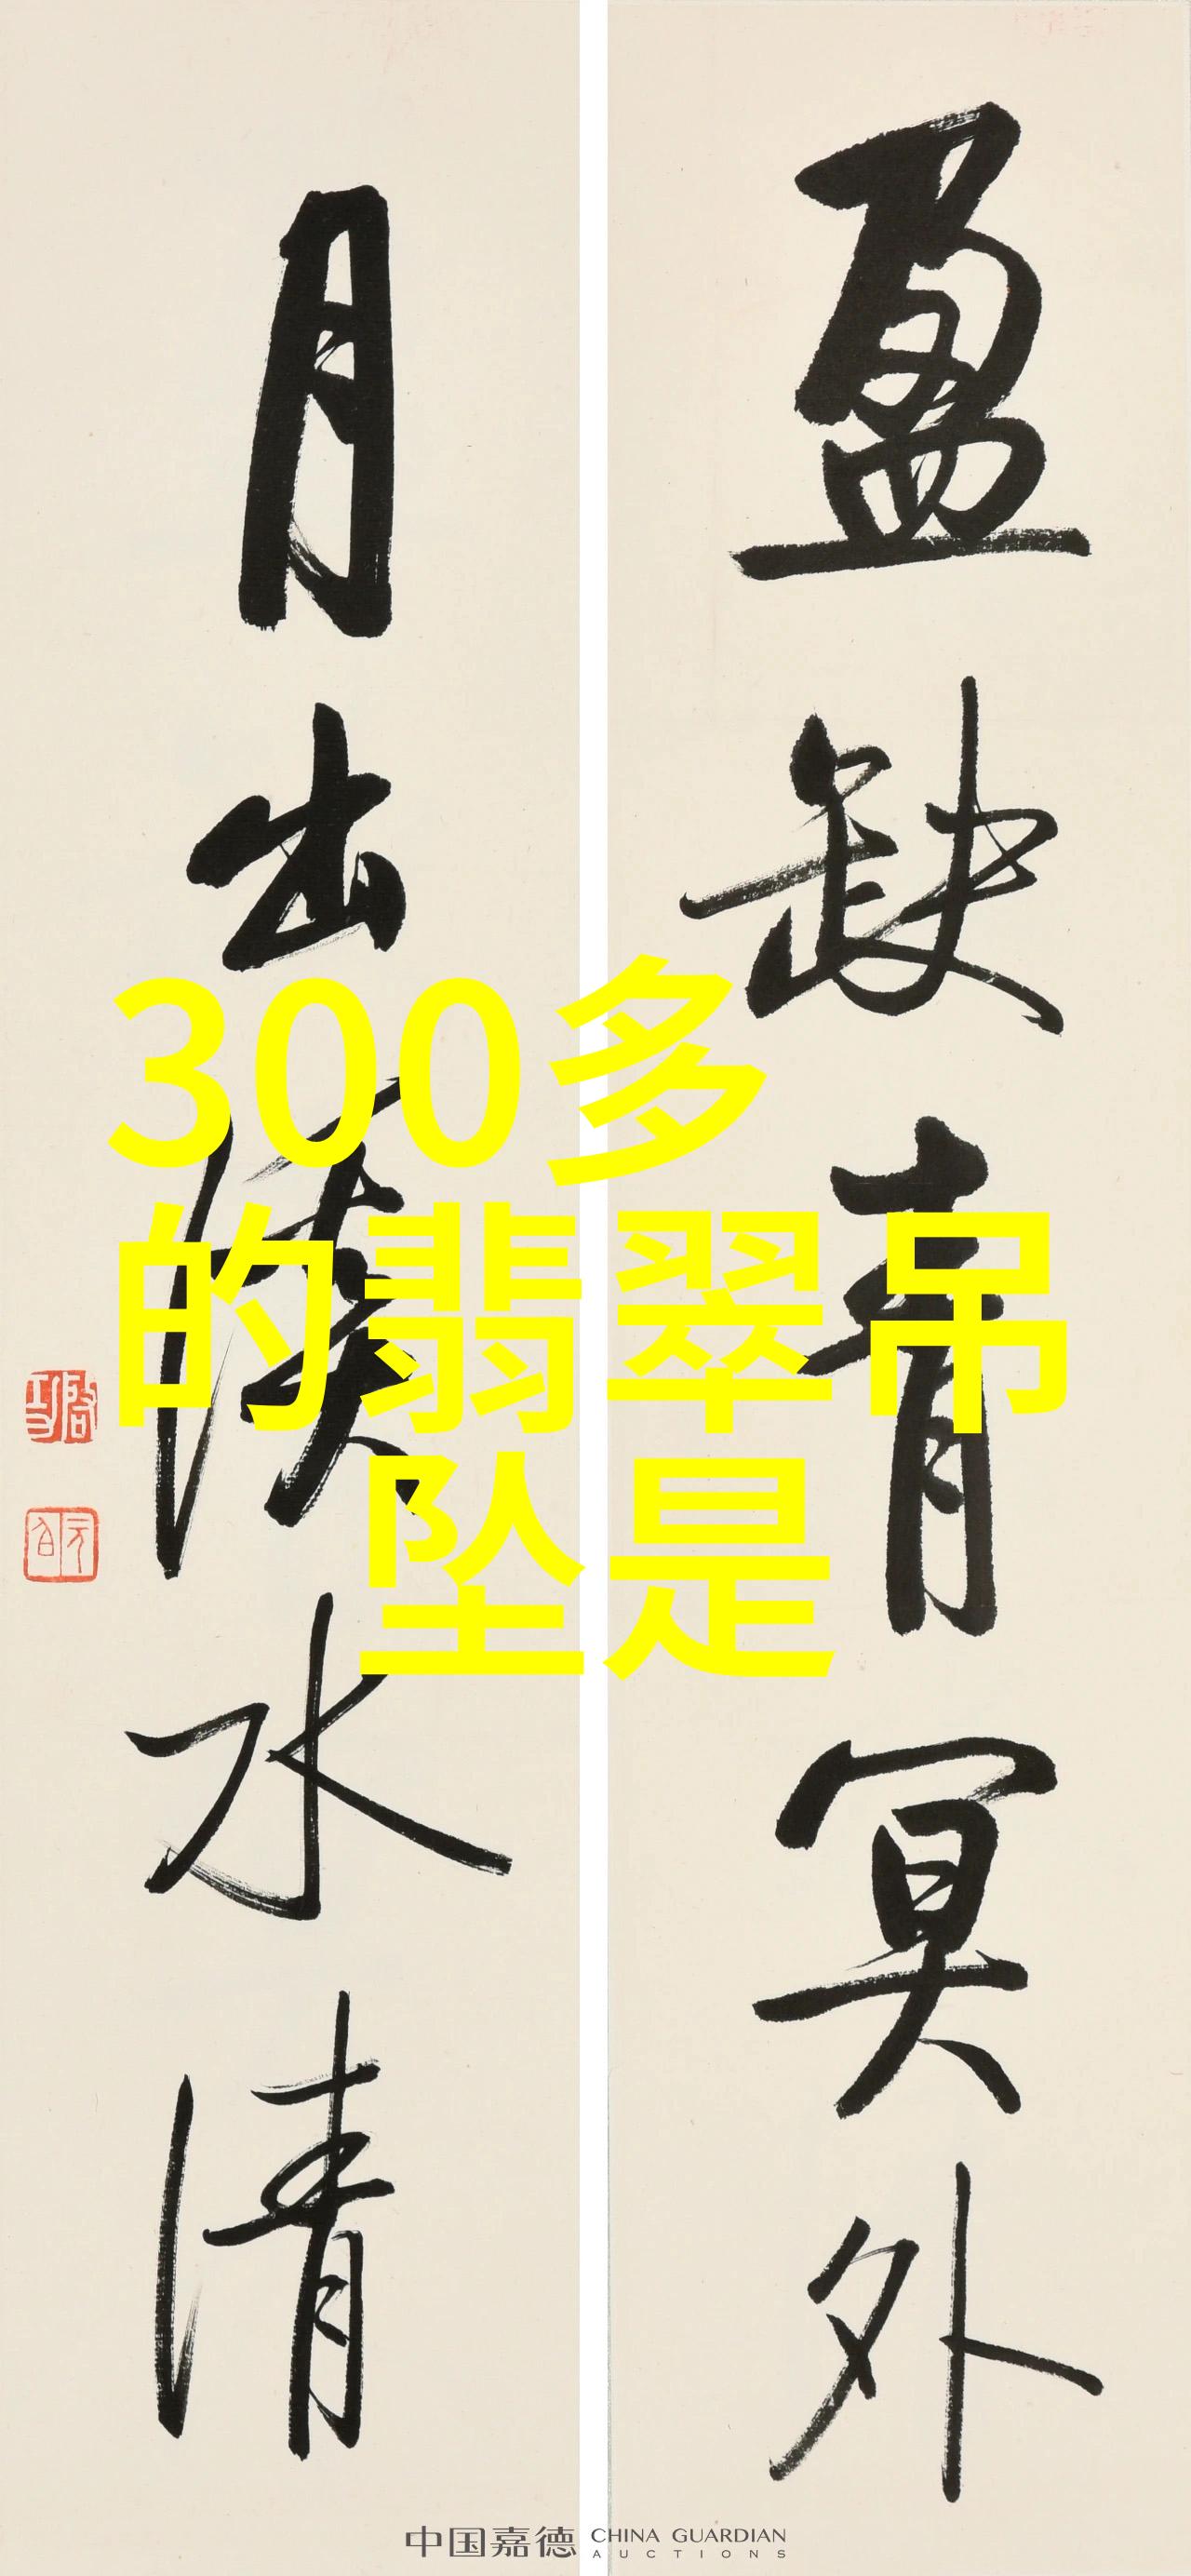 盈缺青冥外
月出水清
启功
元白
300多
的翡翠吊
坠是
中国嘉德 CHINA GUARDIAN
AUCTIONS